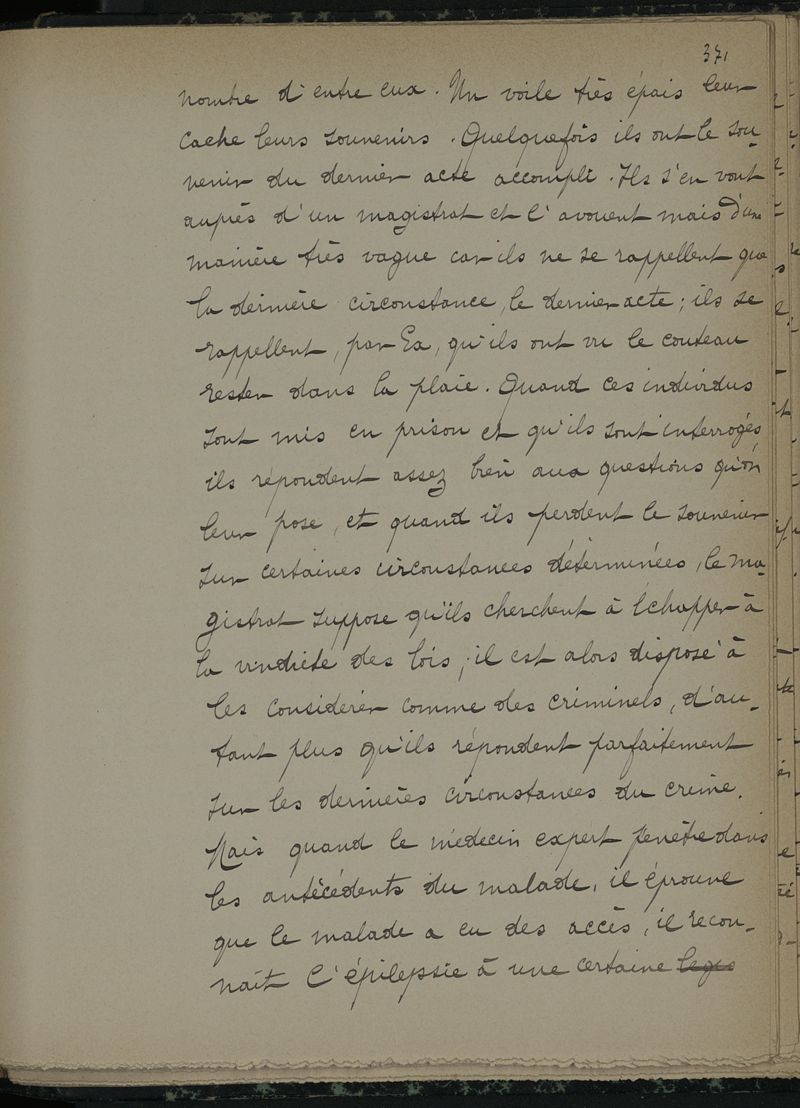 371
nombre d'entre eux. Un voile très épais leur
cache leurs souvenirs. Quelquefois ils ont le sou-
venir du dernier acte accompli. Ils s'en vont
auprès d'un magistrat et l'avouent mais d'une
manière très vague car ils ne se rappellent que
la dernière circonstance, le dernier acte; ils se
rappellent, par Ex, qu'ils ont vu le couteau
rester dans la plaie. Quand ces individus
sont mis en prison et qu'ils sont interrogés,
ils répondent assez bien aux questions qu'on
leur pose, et quand ils perdent le souvenir
sur certaines circonstances déterminées, le ma-
gistrat suppose qu'ils cherchent à échapper à
la vindicte des lois; il est alors disposé à
les considérer comme des criminels, d'au-
tant plus qu'ils répondent parfaitement
sur les dernières circonstances du crime.
Mais quand le médecin expert pénètre dans
les antécédents du malade, il éprouve
que le malade a eu des accès, il recon-
naît l'épilepsie à une certaine